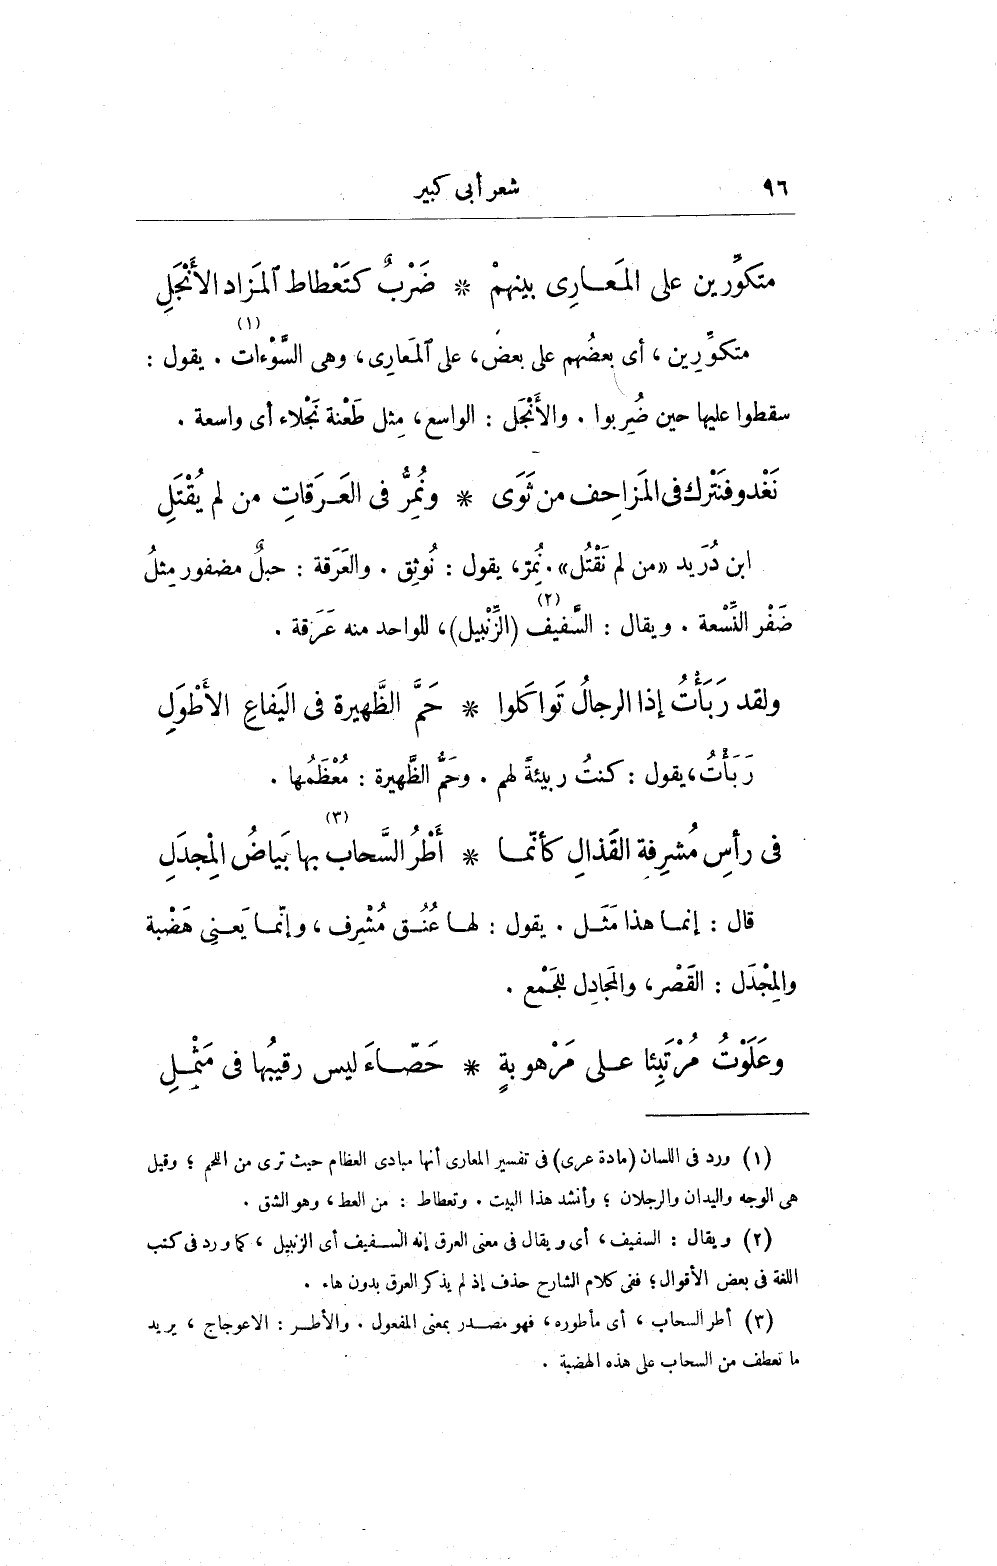 ٩٦
شعر أبى كبير
متكوِّرين على المَعــارِى بينهمْ * ضَرْبٌ كتَعْطاط ٱلمَزاد الأَنْجَلِ
متكوِّرين، أى بعضُهم على بعض، على ٱلمَعارِى، وهى السَّوْءات (١) . يقول :
سقطوا عليها حين ضُرِبوا . والأَنْجَل : الواسع، مِثل طَعْنة نَجْلاء أى واسعة .
نَغْدو فنَتْرك فى المَزاحِف من ثَوَى * ونُمِرُّ فى العَــرَقاتِ من لم يُقْتَلِ
ابن دُرَيد «من لم نَقْتُل». نُمِرّ، يقول : نُوثِق . والعَرَقة : حبلٌ مضفور مِثلُ
ضَفْر النِّسْعة . ويقال : السَّفيف (٢) (الزَّنْبيل)، للواحد منه عَرَقة .
ولقد رَبَأْتُ إذا الرجالُ تَواكَلوا * حَمَّ الظَّهيرة فى اليَفاعِ الأَطْوَلِ
رَبَأْتُ، يقول : كنتُ ربيئةً لهم . وحَمُّ الظَّهيرة : مُعْظَمُها .
فى رأسِ مُشرِفة القَذالِ كأنّمــا * أَطْرُ السَّحاب (٣) بها بَياضُ الْمِجدَلِ
قال : إنمــا هذا مَثَــل . يقول : لهــا عُنُــق مُشْرِف ، وإنّمــا يَعــنِى هَضْبة
والمِجْدَل : القَصْر، والمَجادِل للجَمْع .
وعَلَوْتُ مُرْتَبِئا علــى مَرْهوبةٍ * حَصّــاءَ ليس رقيبُها فى مَثْمِــلِ
(١) ورد فى اللسان (مادة عرى) فى تفسير المعارى أنها مبادى العظام حيث ترى من اللحم ؛ وقيل
هى الوجه واليدان والرجلان ؛ وأنشد هذا البيت . وتعطاط : من العط، وهو الشق .
(٢) ويقال : السفيف، أى ويقال فى معنى العرق إنه السـفيف أى الزنبيل ، كما ورد فى كتب
اللغة فى بعض الأقوال؛ ففى كلام الشارح حذف إذ لم يذكر العرق بدون هاء .
(٣) أطر السحاب ، أى مأطوره، فهو مصــدر بمعنى المفعول . والأطــر : الاعوجاج ، يريد
ما تعطف من السحاب على هذه الهضبة .